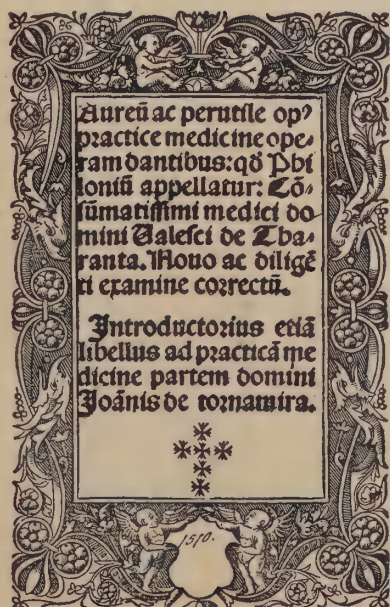 Aureū ac perutile opꝰ
practice medicine ope⸗
ram dantibus: qđ Phi
loniū appellatur: Cō⸗
sūmatissimi medici do
mini Ualesci de Tha⸗
ranta. Nouo ac diligē
ti examine correctū.
Introductorius etiā
libellus ad practicā me
dicine partem domini
Joānis de tornamira.
1510.